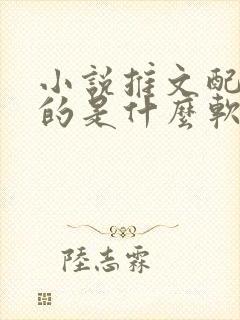 小說推文配
的是什麼軟
陸志霖